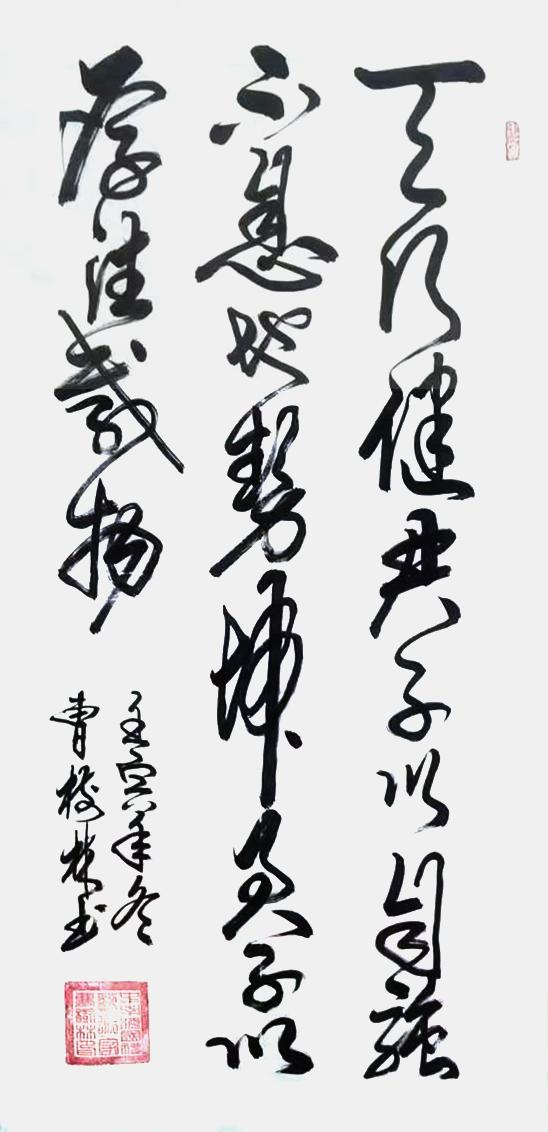 天行健君子以自強
不息地勢坤君子以
厚德載物
壬寅年冬
曹林书